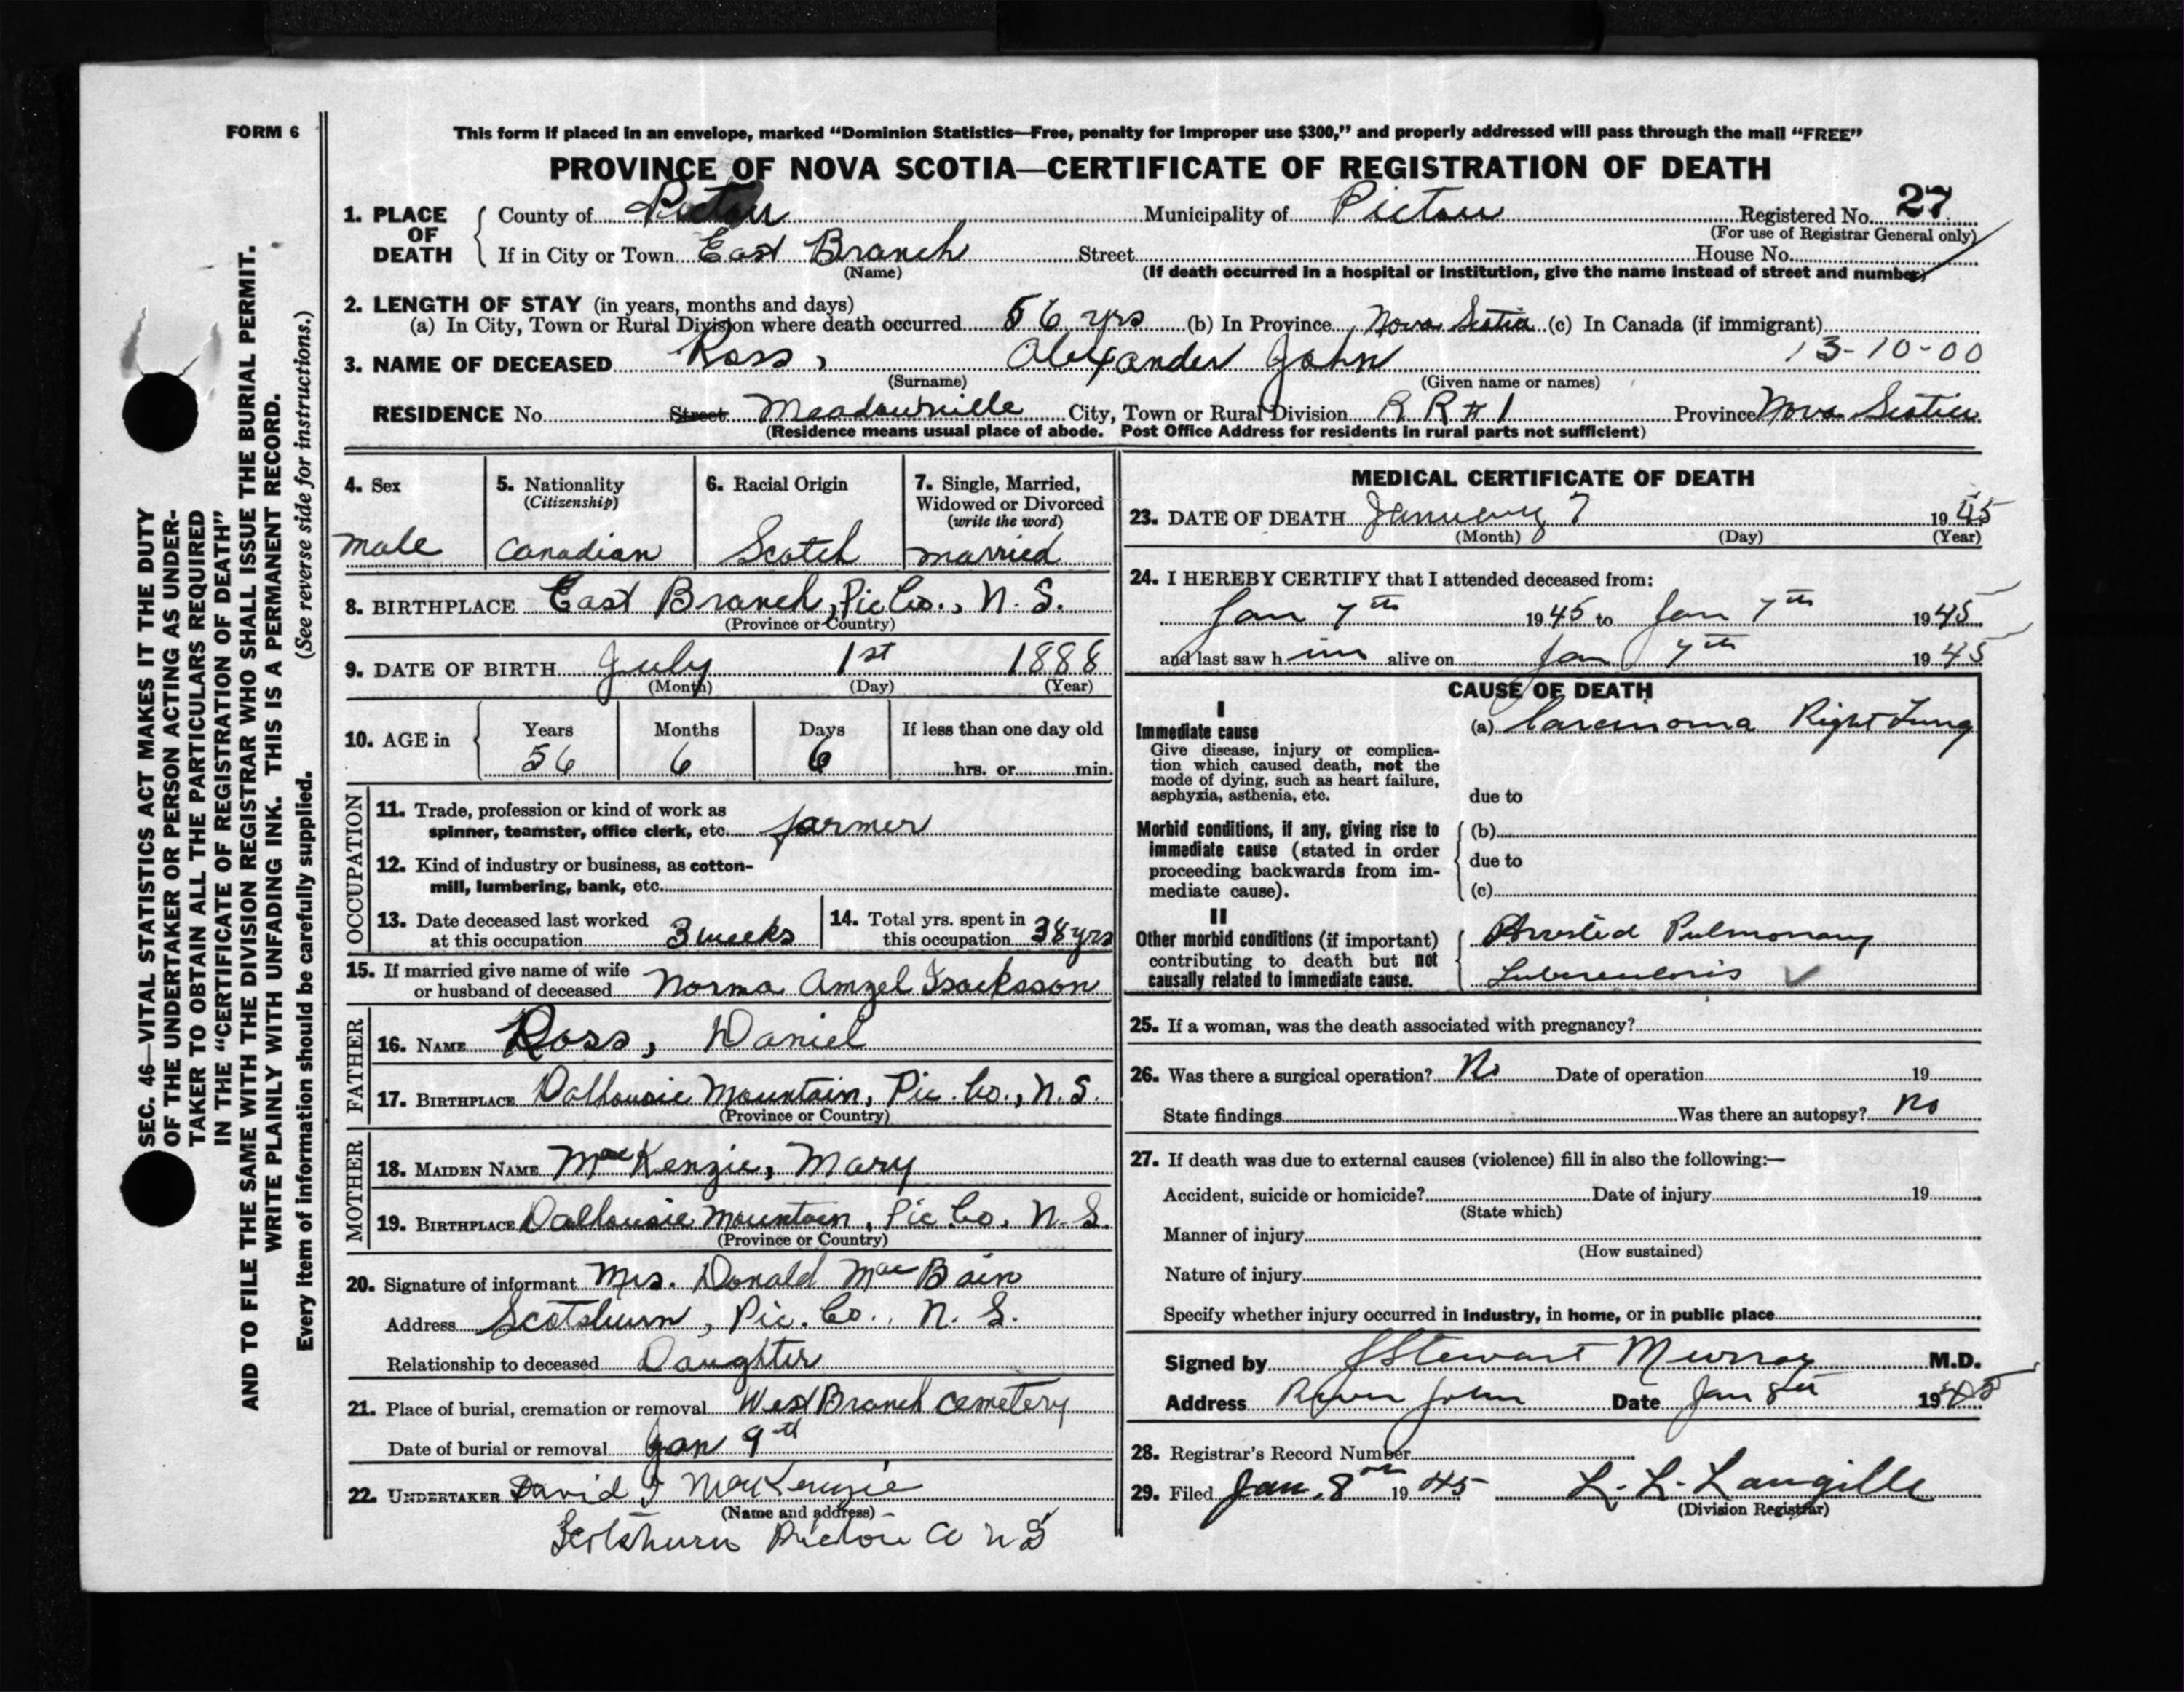 FORM 6
This form if placed in an envelope, marked “Dominion Statistics—Free, penalty for improper use $300,” and properly addressed will pass through the mail “FREE”
PROVINCE OF NOVA SCOTIA—CERTIFICATE OF REGISTRATION OF DEATH
1. PLACE OF DEATH County of Pictou Municipality of Pictou Registered No. 27
(For use of Registrar General only)
If in City or Town East Branch Street House No.
(Name) (If death occurred in a hospital or institution, give the name instead of street and number)
2. LENGTH OF STAY (in years, months and days)
(a) In City, Town or Rural Division where death occurred 56 yrs (b) In Province Nova Scotia (c) In Canada (if immigrant)
13-10-00
3. NAME OF DECEASED Ross, Alexander John
(Surname) (Given name or names)
RESIDENCE No. Street Meadowville City, Town or Rural Division R R # 1 Province Nova Scotia
(Residence means usual place of abode. Post Office Address for residents in rural parts not sufficient)
4. Sex
male
5. Nationality
(Citizenship)
Canadian
6. Racial Origin
Scotch
7. Single, Married,
Widowed or Divorced
(write the word)
married
8. BIRTHPLACE East Branch, Pic Co., N. S.
(Province or Country)
9. DATE OF BIRTH July 1st 1888
(Month) (Day) (Year)
10. AGE in Years Months Days If less than one day old
56 6 6 hrs. or min.
OCCUPATION
11. Trade, profession or kind of work as
spinner, teamster, office clerk, etc. farmer
12. Kind of industry or business, as cotton-
mill, lumbering, bank, etc.
13. Date deceased last worked
at this occupation 3 weeks
14. Total yrs. spent in
this occupation 38 yrs
15. If married give name of wife
or husband of deceased Norma Amzel Isacksson
FATHER
16. NAME Ross, Daniel
17. BIRTHPLACE Dalhousie Mountain, Pic. Co., N. S.
(Province or Country)
MOTHER
18. MAIDEN NAME MacKenzie, Mary
19. BIRTHPLACE Dalhousie Mountain, Pic Co. N. S.
(Province or Country)
20. Signature of informant Mrs. Donald MacBain
Address Scotsburn, Pic. Co., N. S.
Relationship to deceased Daughter
21. Place of burial, cremation or removal West Branch Cemetery
Date of burial or removal Jan 9th
22. UNDERTAKER David J MacKenzie
(Name and address)
Scotsburn Pictou Co N S
MEDICAL CERTIFICATE OF DEATH
23. DATE OF DEATH January 7 1945
(Month) (Day) (Year)
24. I HEREBY CERTIFY that I attended deceased from:
Jan 7th 1945 to Jan 7th 1945
and last saw him alive on Jan 7th 1945
CAUSE OF DEATH
I
Immediate cause
Give disease, injury or complica-
tion which caused death, not the
mode of dying, such as heart failure,
asphyxia, asthenia, etc.
(a) Carcinoma Right Lung
due to
Morbid conditions, if any, giving rise to
immediate cause (stated in order
proceeding backwards from im-
mediate cause).
(b)
due to
(c)
II
Other morbid conditions (if important)
contributing to death but not
causally related to immediate cause.
Arrested Pulmonary
Tuberculosis ✓
25. If a woman, was the death associated with pregnancy?
26. Was there a surgical operation? No Date of operation 19
State findings Was there an autopsy? No
27. If death was due to external causes (violence) fill in also the following:—
Accident, suicide or homicide? Date of injury 19
(State which)
Manner of injury
(How sustained)
Nature of injury
Specify whether injury occurred in industry, in home, or in public place
Signed by J Stewart Murray M.D.
Address River John Date Jan 8th 1945
28. Registrar's Record Number
29. Filed Jan. 8th 1945 L. L. Langille
(Division Registrar)
SEC. 46—VITAL STATISTICS ACT MAKES IT THE DUTY
OF THE UNDERTAKER OR PERSON ACTING AS UNDER-
TAKER TO OBTAIN ALL THE PARTICULARS REQUIRED
IN THE “CERTIFICATE OF REGISTRATION OF DEATH”
AND TO FILE THE SAME WITH THE DIVISION REGISTRAR WHO SHALL ISSUE THE BURIAL PERMIT.
WRITE PLAINLY WITH UNFADING INK. THIS IS A PERMANENT RECORD.
Every item of information should be carefully supplied. (See reverse side for instructions.)